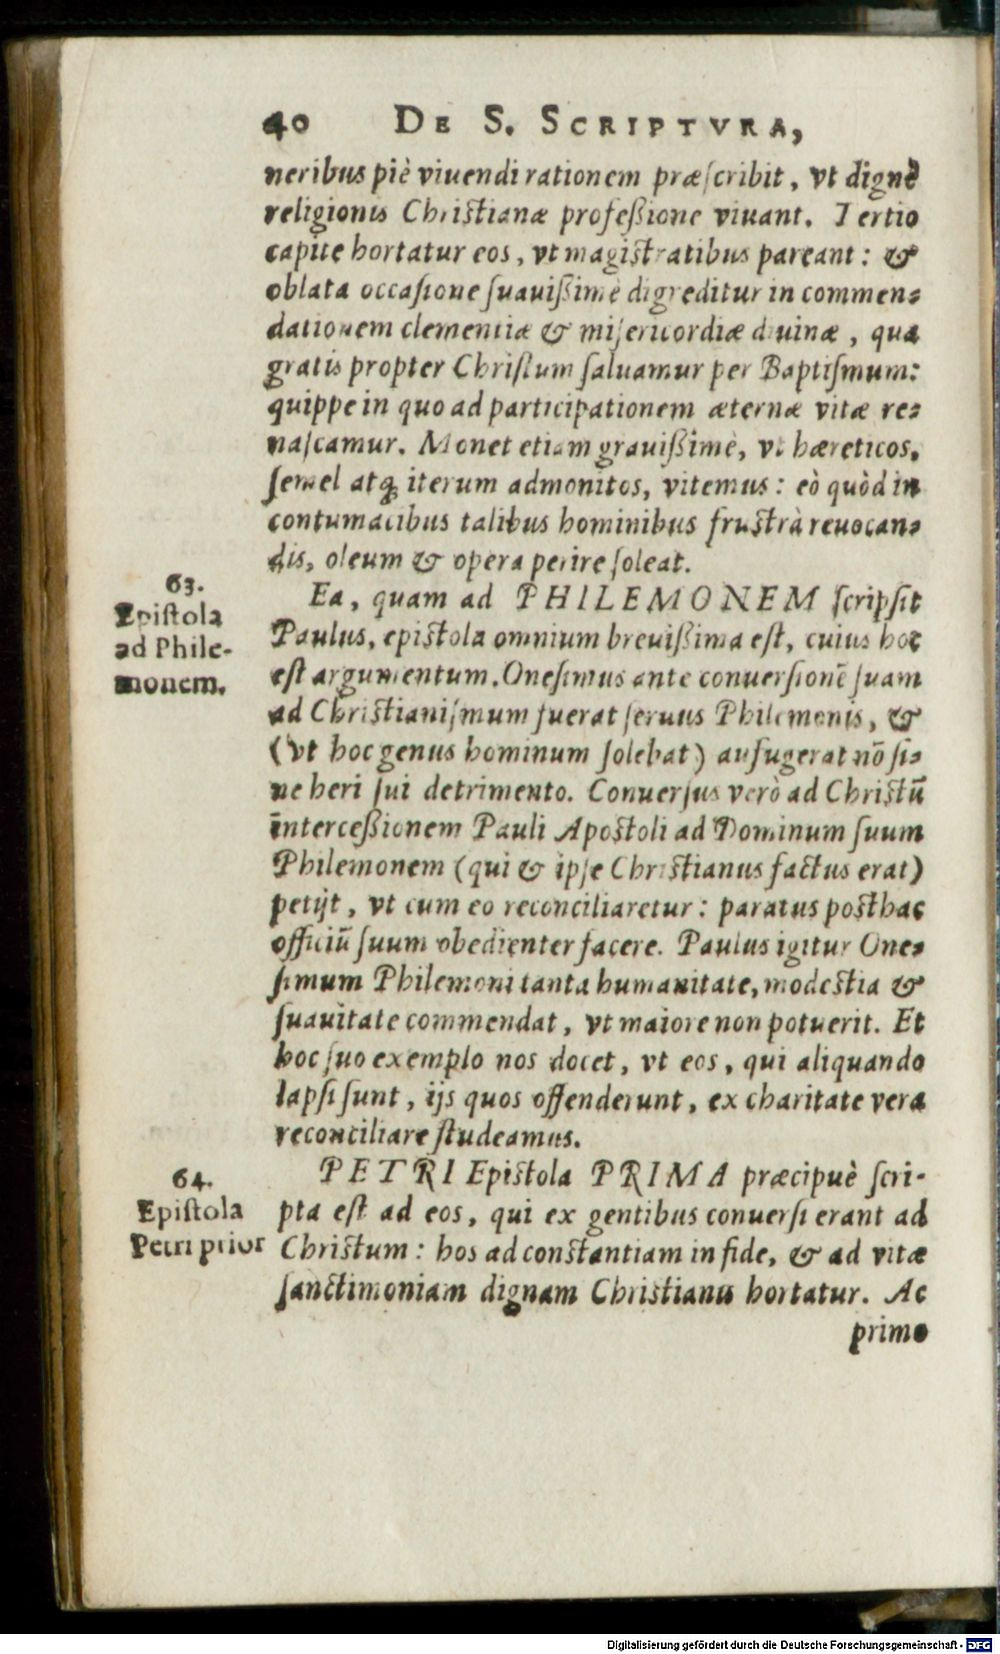 40 DE S. SCRIPTVRA,
neribus piè viuendi rationem præſcribit, vt dignè
religionis Chriſtianæ profeßione viuant. Tertio
capite hortatur eos, vt magiſtratibus pareant: &
oblata occaſione ſuauißimè digreditur in commen-
dationem clementiæ & miſericordiæ diuinæ, qua
gratis propter Chriſtum ſaluamur per Baptiſmum:
quippe in quo ad participationem æternæ vitæ re-
naſcamur. Monet etiam grauißimè, vt hæreticos,
ſemel atq; iterum admonitos, vitemus: eò quòd in
contumacibus talibus hominibus fruſtrà reuocan-
dis, oleum & opera perire ſoleat.
63.
Epiſtola
ad Phile-
monem.
Ea, quam ad PHILEMONEM ſcripſit
Paulus, epiſtola omnium breuißima eſt, cuius hoc
eſt argumentum. Oneſimus ante conuerſionẽ ſuam
ad Chriſtianiſmum fuerat ſeruus Philemonis, &
(vt hoc genus hominum ſolebat) aufugerat nõ ſi-
ne heri ſui detrimento. Conuerſus verò ad Chriſtũ
interceßionem Pauli Apoſtoli ad Dominum ſuum
Philemonem (qui & ipſe Chriſtianus factus erat)
petijt, vt cum eo reconciliaretur: paratus poſthac
officiũ ſuum obedienter facere. Paulus igitur One-
ſimum Philemoni tanta humanitate, modeſtia &
ſuauitate commendat, vt maiore non potuerit. Et
hoc ſuo exemplo nos docet, vt eos, qui aliquando
lapſi ſunt, ijs quos offenderunt, ex charitate vera
reconciliare ſtudeamus.
64.
Epiſtola
Petri prior
PETRI Epiſtola PRIMA præcipuè ſcri-
pta eſt ad eos, qui ex gentibus conuerſi erant ad
Chriſtum: hos ad conſtantiam in fide, & ad vitæ
ſanctimoniam dignam Chriſtianis hortatur. Ac
primo
Digitalisierung gefördert durch die Deutsche Forschungsgemeinschaft - DFG